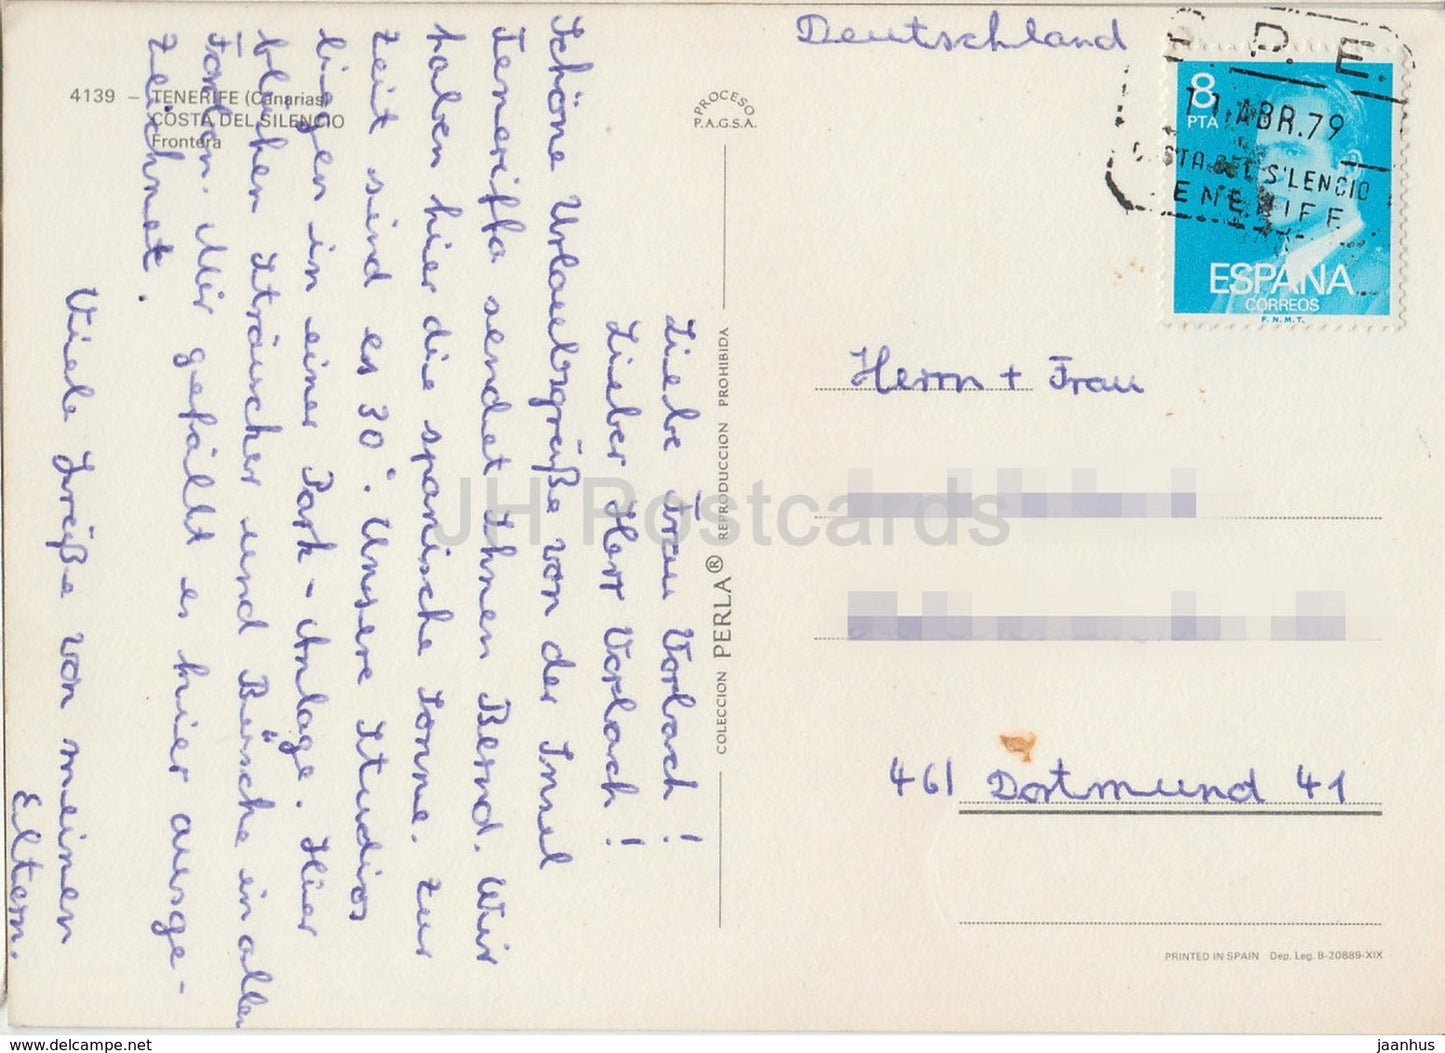 Liebe Frau Vorlach!
Lieber Herr Vorlach!
Schöne Urlaubsgrüße von der Insel
Teneriffa sendet Ihnen Bernd. Wir
haben hier die spanische Sonne. Zur
Zeit sind es 30°. Unsere Studios
liegen in einer Park-Anlage. Hier
blühen Sträucher und Büsche in allen
Farben. Mir gefällt es hier ausge-
zeichnet.
Viele Grüße von meinen
Eltern.
4139 – TENERIFE (Canarias)
COSTA DEL SILENCIO
Frontera
PROCESO
P.A.G.S.A.
COLECCION PERLA® REPRODUCCION PROHIBIDA
Deutschland
8
PTA
ABR.79
ESPAÑA
CORREOS
F.N.M.T.
Herrn + Frau
461 Dortmund 41
PRINTED IN SPAIN Dep. Leg. B-20889-XIX
JH Postcards
www.delcampe.net
jaanhus